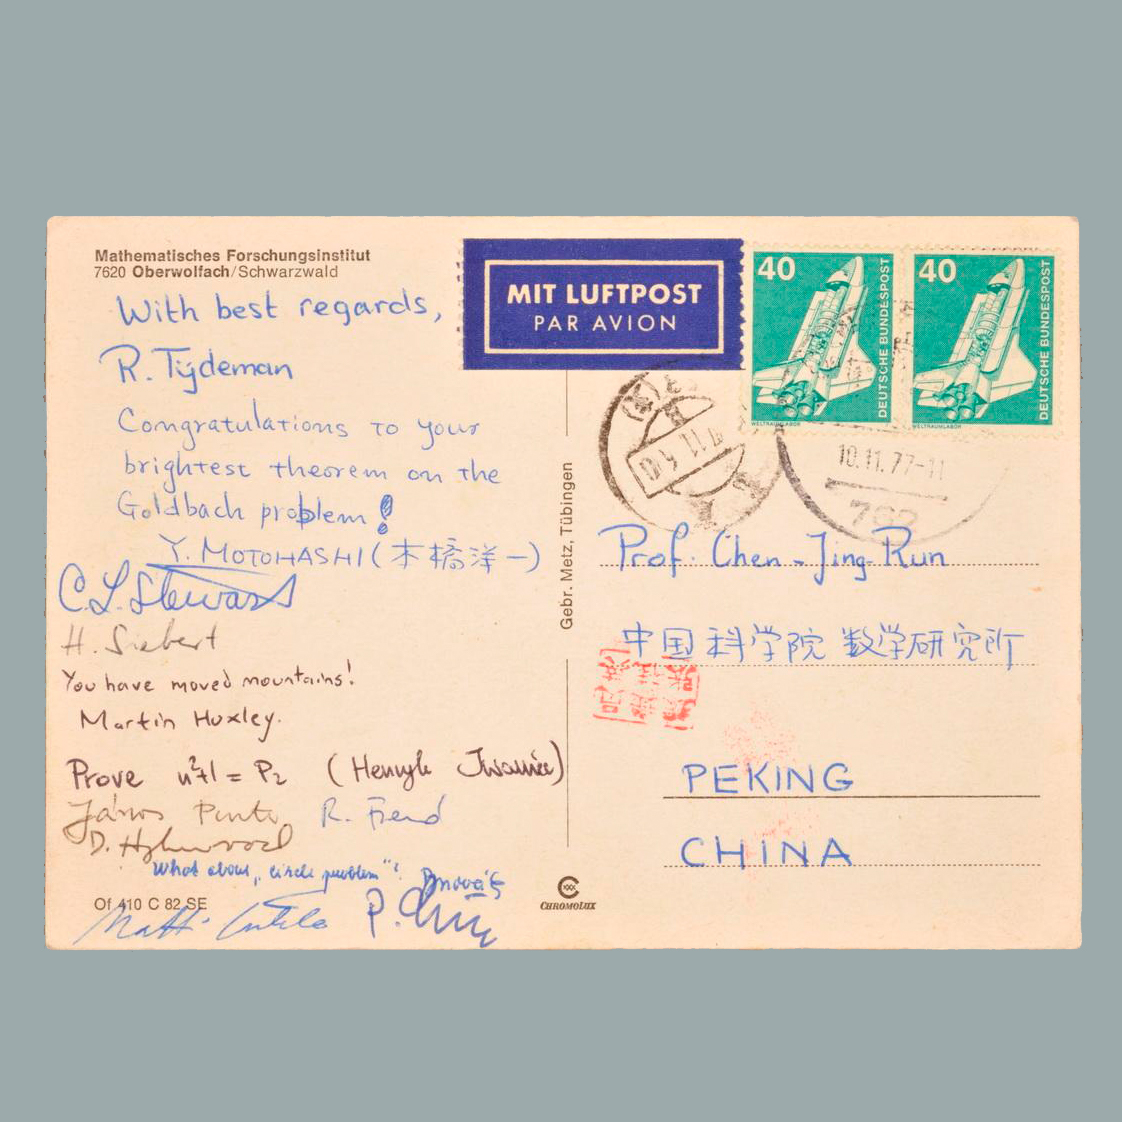 Mathematisches Forschungsinstitut
7620 Oberwolfach/Schwarzwald
With best regards,
R. Tijdeman
Congratulations to your
brightest theorem on the
Goldbach problem!
Y. MOTOHASHI (本橋洋一)
C.L. Stewart
H. Siebert
You have moved mountains!
Martin Huxley.
Prove n²+1 = P₂ (Henryk Iwaniec)
János Pintz R. Freud
D.
What about "circle problem"? B. Novák
Of 410 C 82 SE
Matti Jutila P.
MIT LUFTPOST
PAR AVION
40
DEUTSCHE BUNDESPOST
WELTRAUMLABOR
40
DEUTSCHE BUNDESPOST
WELTRAUMLABOR
10.11.77-11
762
Gebr. Metz, Tübingen
Prof. Chen-Jing-Run
中国科学院 数学研究所
PEKING
CHINA
CHROMOLUX